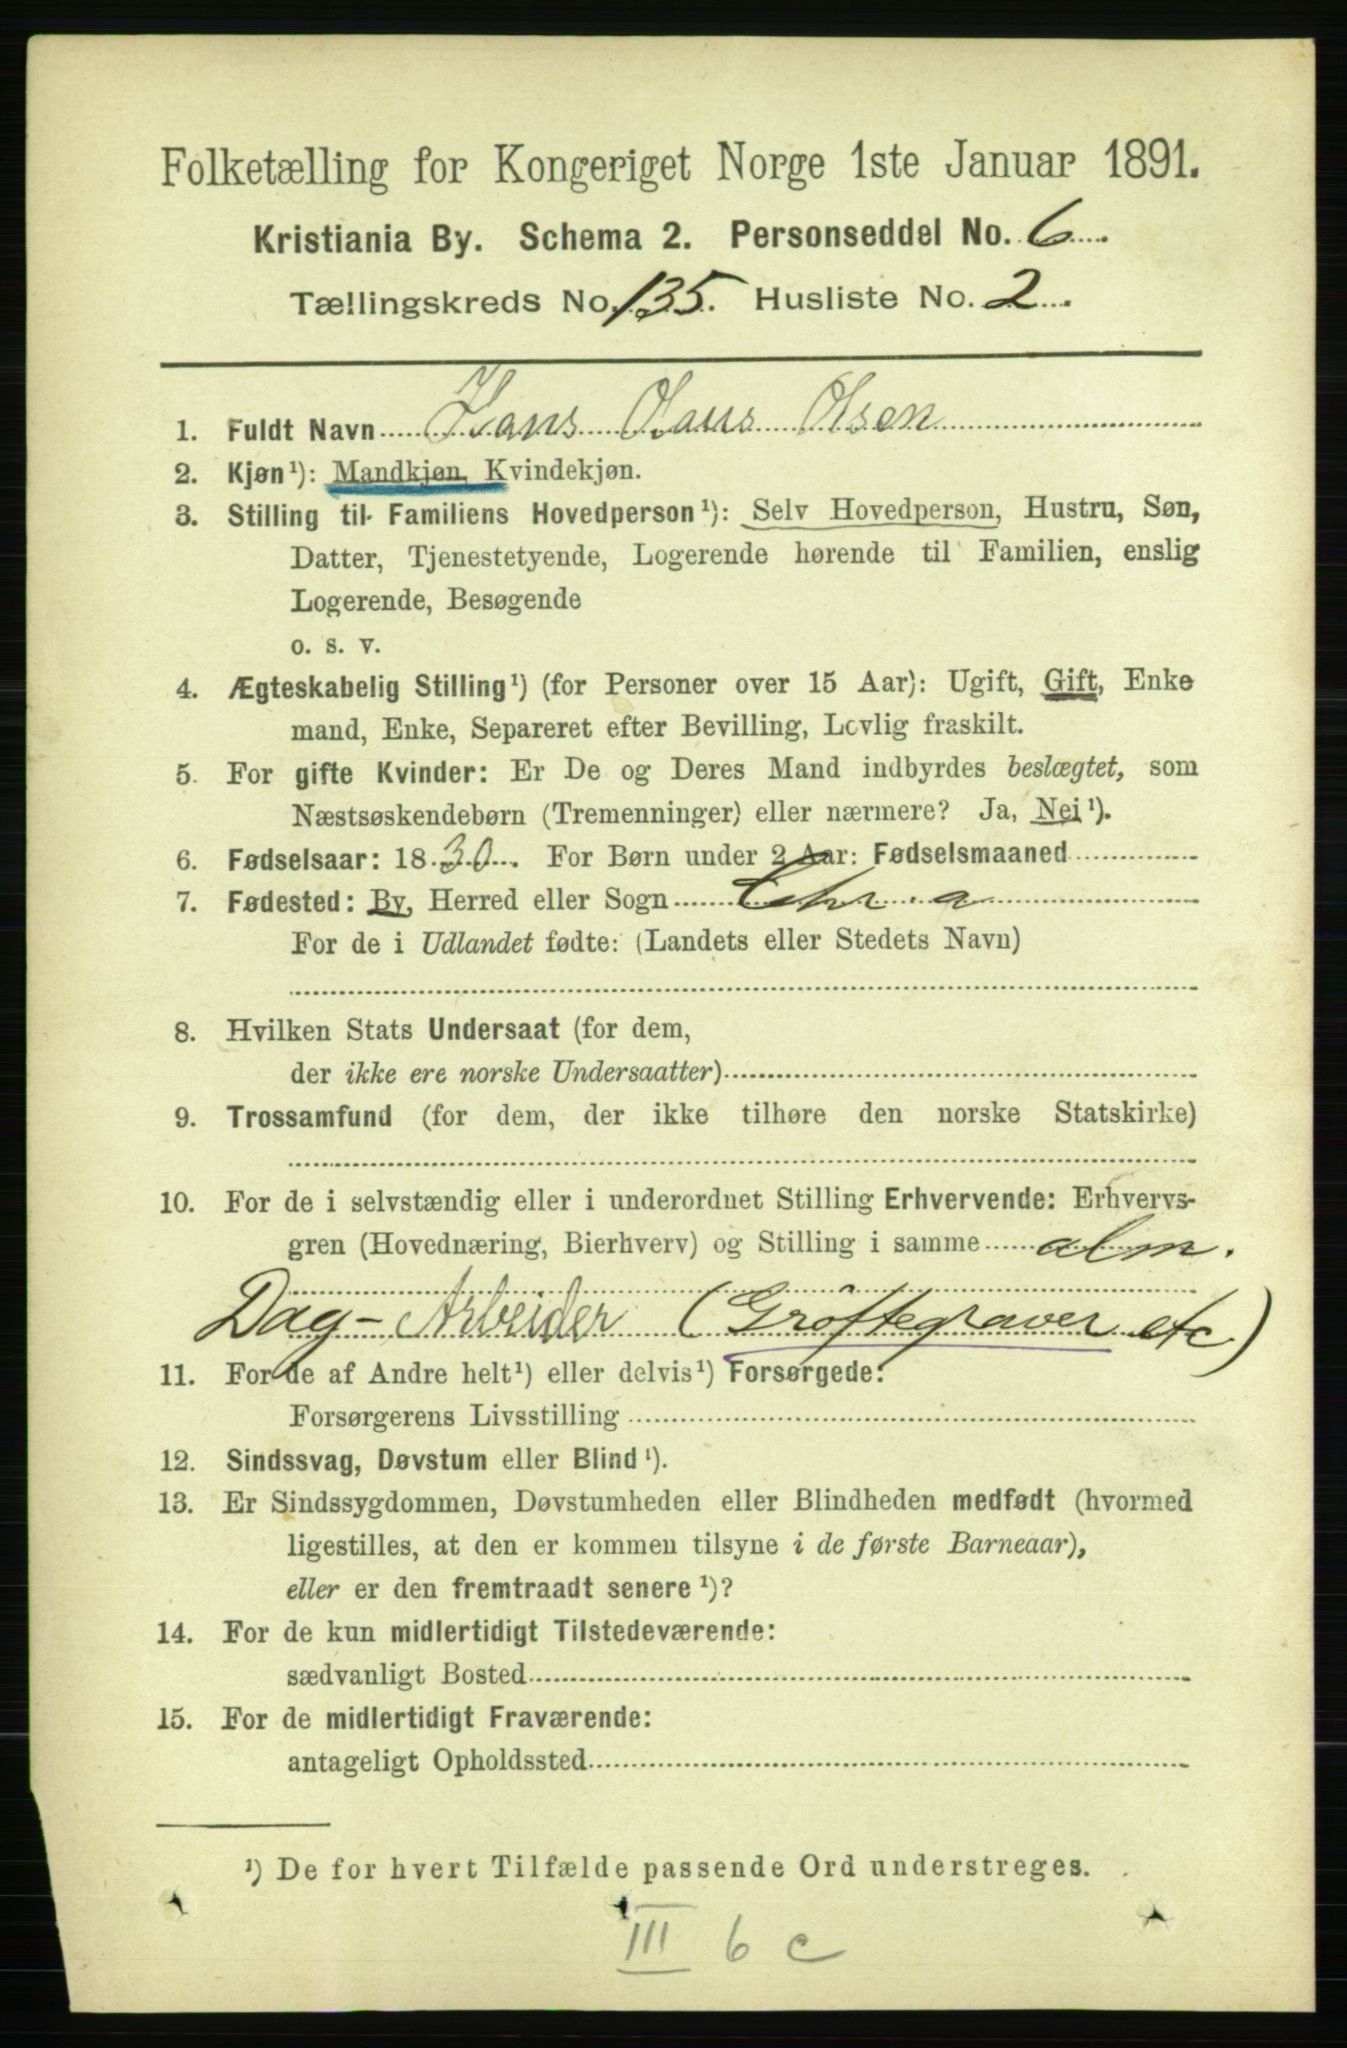 Folketælling for Kongeriget Norge 1ste Januar 1891.
Kristiania By. Schema 2. Personseddel No. 6
Tællingskreds No. 135. Husliste No. 2
1. Fuldt Navn Hans Olaus Olsen
2. Kjøn¹): Mandkjøn, Kvindekjøn.
3. Stilling til Familiens Hovedperson¹): Selv Hovedperson, Hustru, Søn,
Datter, Tjenestetyende, Logerende hørende til Familien, enslig
Logerende, Besøgende
o. s. v.
4. Ægteskabelig Stilling¹) (for Personer over 15 Aar): Ugift, Gift, Enke
mand, Enke, Separeret efter Bevilling, Lovlig fraskilt.
5. For gifte Kvinder: Er De og Deres Mand indbyrdes beslægtet, som
Næstsøskendebørn (Tremenninger) eller nærmere? Ja, Nei¹).
6. Fødselsaar: 1830. For Børn under 2 Aar: Fødselsmaaned
7. Fødested: By, Herred eller Sogn Chr.a
For de i Udlandet fødte: (Landets eller Stedets Navn)
8. Hvilken Stats Undersaat (for dem,
der ikke ere norske Undersaatter)
9. Trossamfund (for dem, der ikke tilhøre den norske Statskirke)
10. For de i selvstændig eller i underordnet Stilling Erhvervende: Erhvervs-
gren (Hovednæring, Bierhverv) og Stilling i samme alm.
Dag-Arbeider (Grøftegraver etc)
11. For de af Andre helt¹) eller delvis¹) Forsørgede:
Forsørgerens Livsstilling
12. Sindssvag, Døvstum eller Blind¹).
13. Er Sindssygdommen, Døvstumheden eller Blindheden medfødt (hvormed
ligestilles, at den er kommen tilsyne i de første Barneaar),
eller er den fremtraadt senere¹)?
14. For de kun midlertidigt Tilstedeværende:
sædvanligt Bosted
15. For de midlertidigt Fraværende:
antageligt Opholdssted
¹) De for hvert Tilfælde passende Ord understreges.
III 6 c